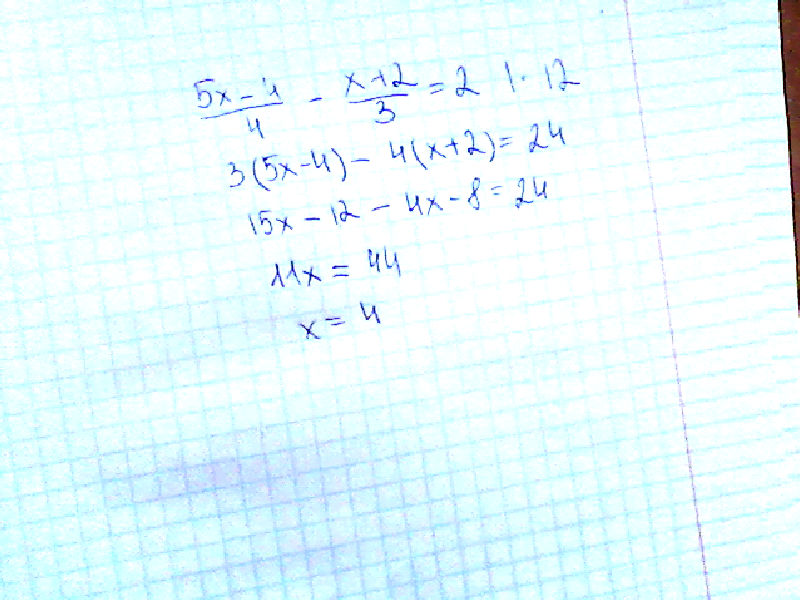 (5x-4)/4 - (x+2)/3 = 2 | · 12
3(5x-4) - 4(x+2) = 24
15x - 12 - 4x - 8 = 24
11x = 44
x = 4